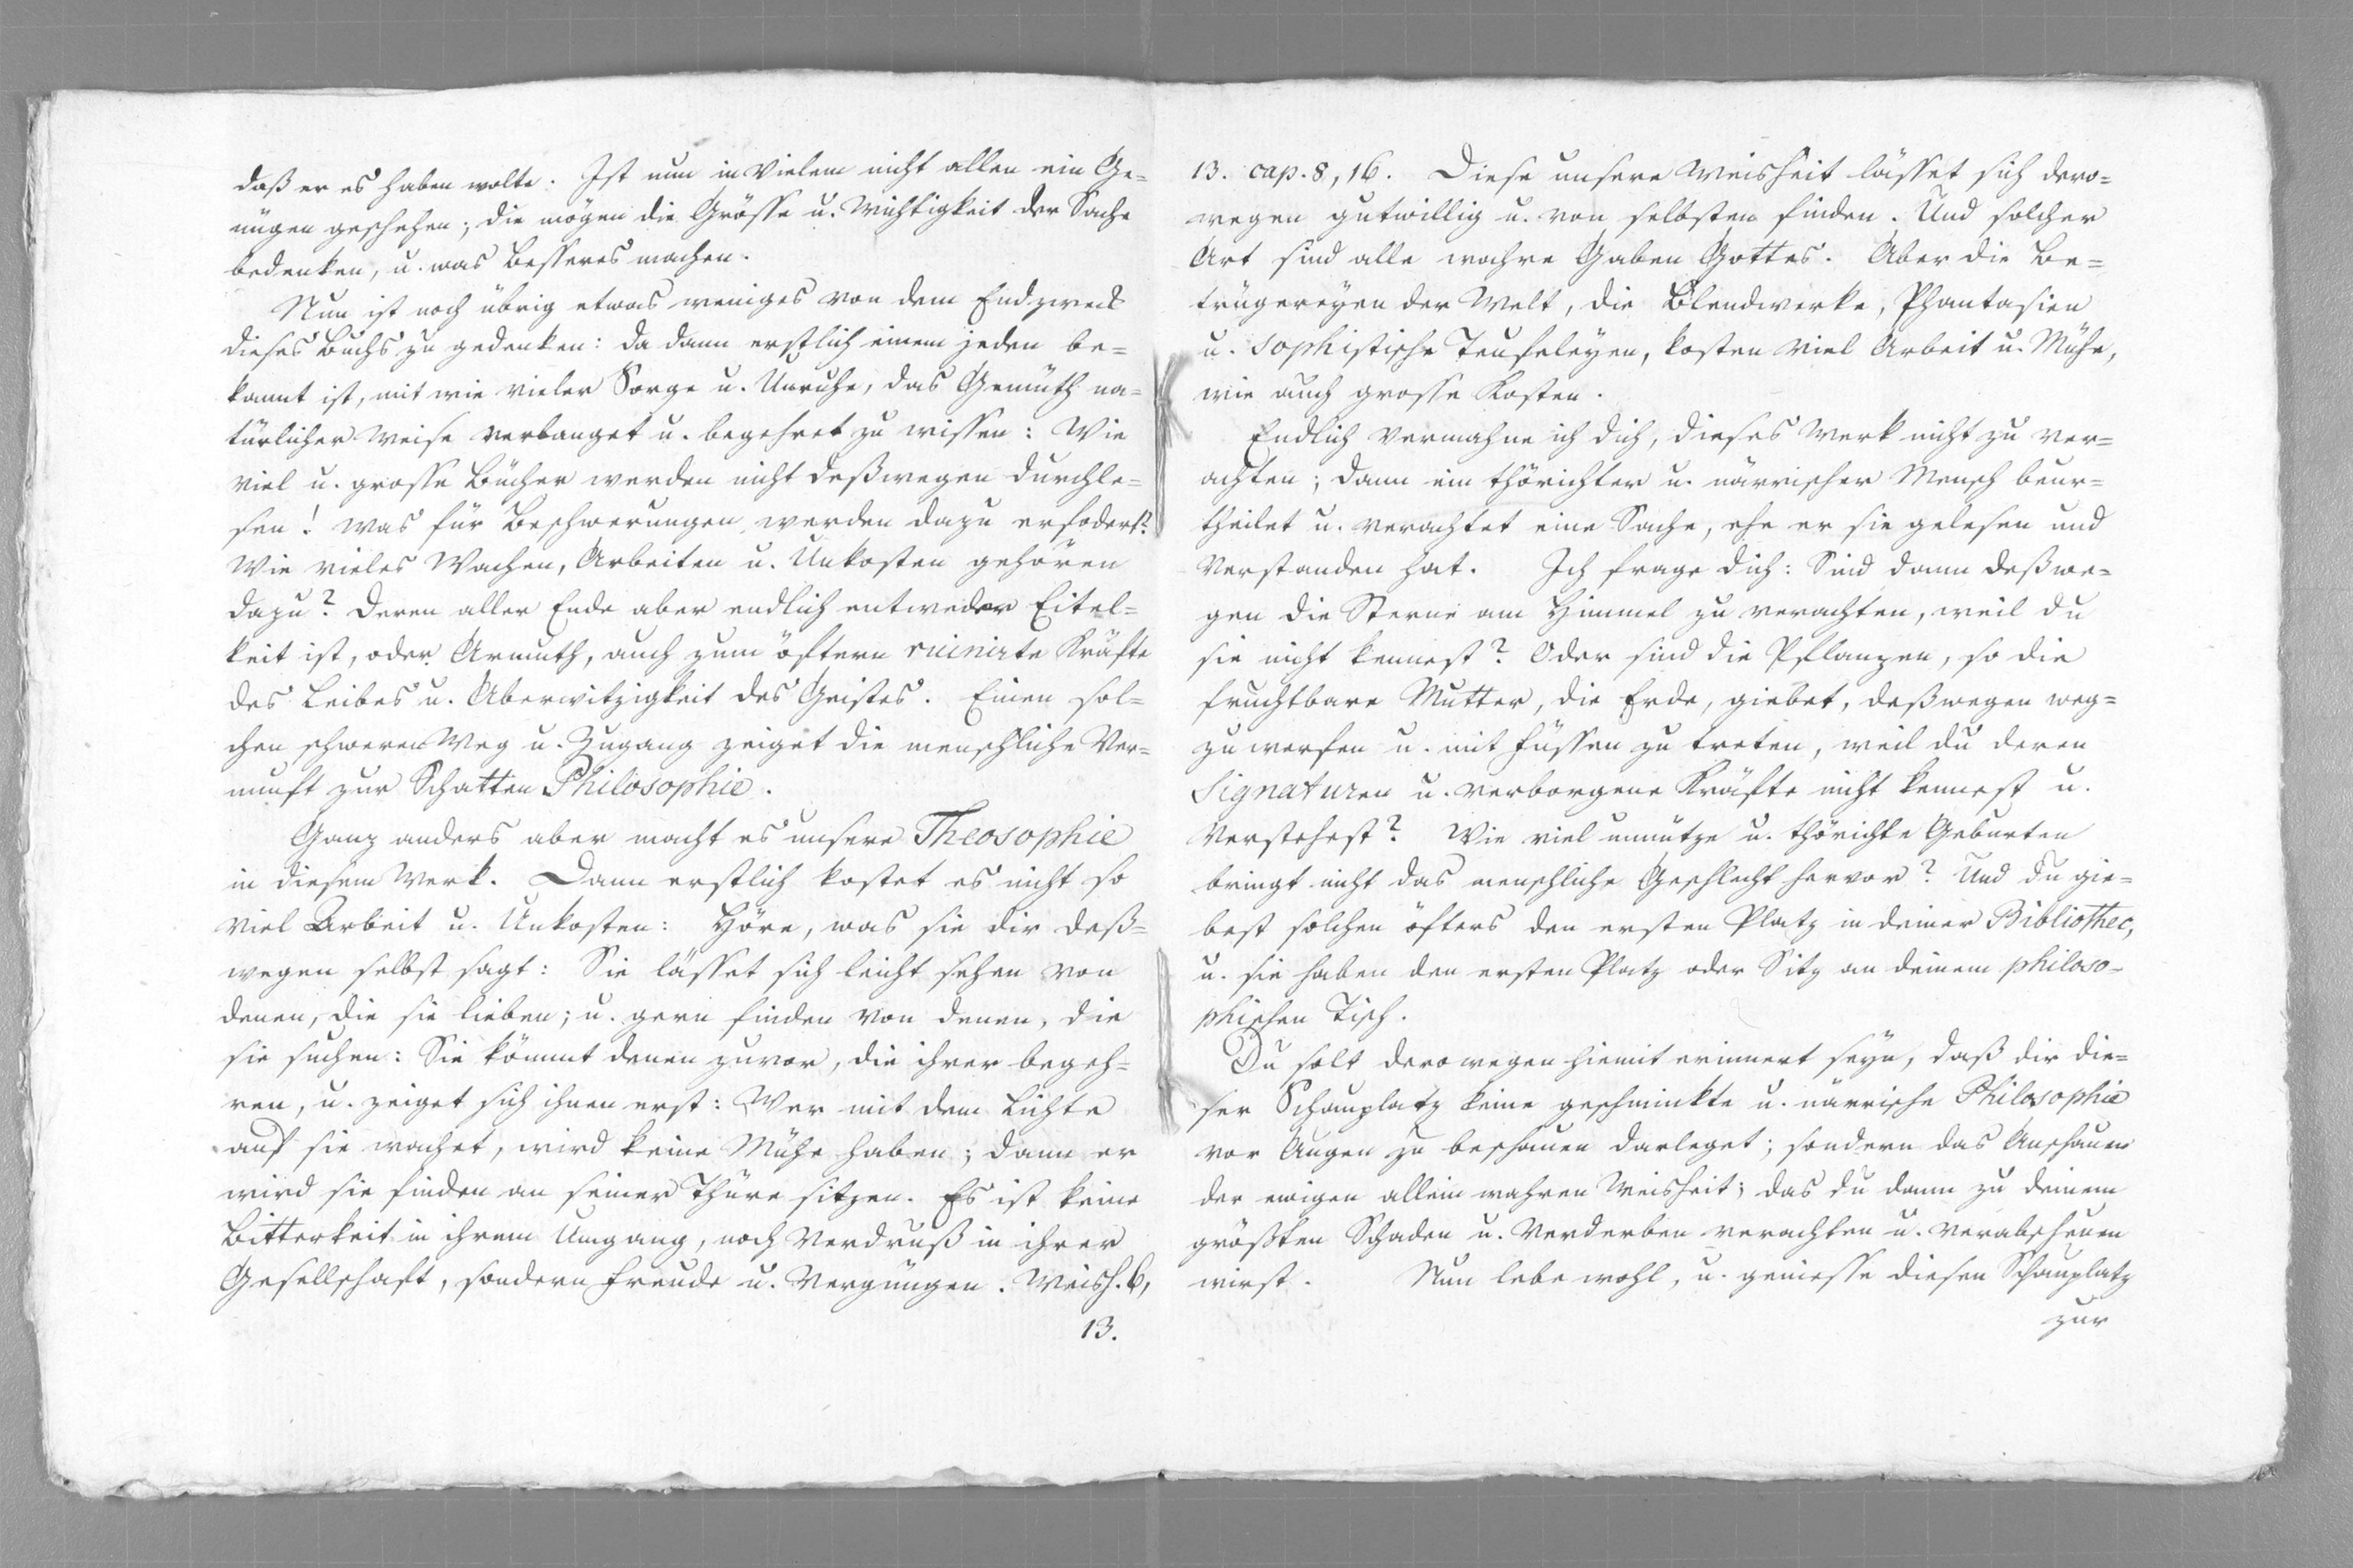 daß er es haben wolte. Ist nun in Vielem nicht allen ein Ge=
nügen geschehen; die mögen die Grösse u. Wichtigkeit der Sache
bedenken, u. was Besseres machen.
Nun ist noch übrig etwas weniges von dem Endzweck
dieses Buchs zu gedenken: da dann erstlich einem jeden be=
kannt ist, mit wie vieler Sorge u. Unruhe, das Gemüth na=
türlicher Weise verlanget u. begehret zu wissen: Wie
viel u. grosse Bücher werden nicht deßwegen durchle=
sen! Was für Beschwerungen werden dazu erfodert?
Wie vieles Wachen, Arbeiten u. Unkosten gehören
dazu? deren aller Ende aber endlich entweder Eitel=
keit ist, oder Armuth, auch zum öftern ruinirte Kräfte
des Leibes u. Aberwitzigkeit des Geistes. Einen sol=
chen schweren Weg u. Zugang zeiget die menschliche Ver=
nunft zur Schatten Philosophie.
Ganz anders aber macht es unsere Theosophie
in diesem Werk. Dann erstlich kostet es nicht so
viel Arbeit u. Unkosten: Höre, was sie dir deß=
wegen selbst sagt: Sie lässet sich leicht sehen von
denen, die sie lieben; u. gern finden von denen, die
sie suchen: Sie kömmt denen zuvor, die ihrer begeh=
ren, u. zeiget sich ihnen erst: Wer mit dem Lichte
auf sie wachet, wird keine Mühe haben; dann er
wird sie finden an seiner Thüre sitzen. Es ist keine
Bitterkeit in ihrem Umgang, noch Verdruß in ihrer
Gesellschaft, sondern Freude u. Vergüngen. Weish. 6,
13.
13. cap. 8, 16. Diese unsere Weisheit lässet sich dero=
wegen gutwillig u. von selbsten finden. Und solcher
Art sind alle wahre Gaben Gottes. Aber die Be=
trügereyen der Welt, die Blendwerke, Phantasien
u. sophistische Teufeleyen, kosten viel Arbeit u. Mühe,
wie auch grosse Kosten.
Endlich vermahne ich dich, dieses Werk nicht zu ver=
achten; dann ein thörichter u. närrischer Mensch beur=
theilet u. verachtet eine Sache, ehe er sie gelesen und
verstanden hat. Ich frage dich: Sind dann deßwe=
gen die Sterne am Himmel zu verachten, weil du
sie nicht kennest? Oder sind die Pflanzen, so die
fruchtbare Mutter, die Erde, giebet, deßwegen weg=
zu werfen u. mit Füssen zu treten, weil du deren
Signaturen u. verborgene Kräfte nicht kennest u.
verstehest? Wie viel unnütze u. thörichte Geburten
bringt nicht das menschliche Geschlecht hervor? Und du gie=
best solchen öfters den ersten Platz in deiner Bibliothec,
u. sie haben den ersten Platz oder Sitz an deinem philoso=
phischen Tisch.
Du solt derowegen hiemit erinnert seyn, daß dir die=
ser Schauplatz keine geschminkte u. närrische Philosophie
vor Augen zu beschauen darleget; sondern das Anschauen
der ewigen allein wahren Weisheit; das du dann zu deinem
größten Schaden u. Verderben verachten u. verabscheuen
wirst. Nun lebe wohl, u. geniesse diesen Schauplatz
zur